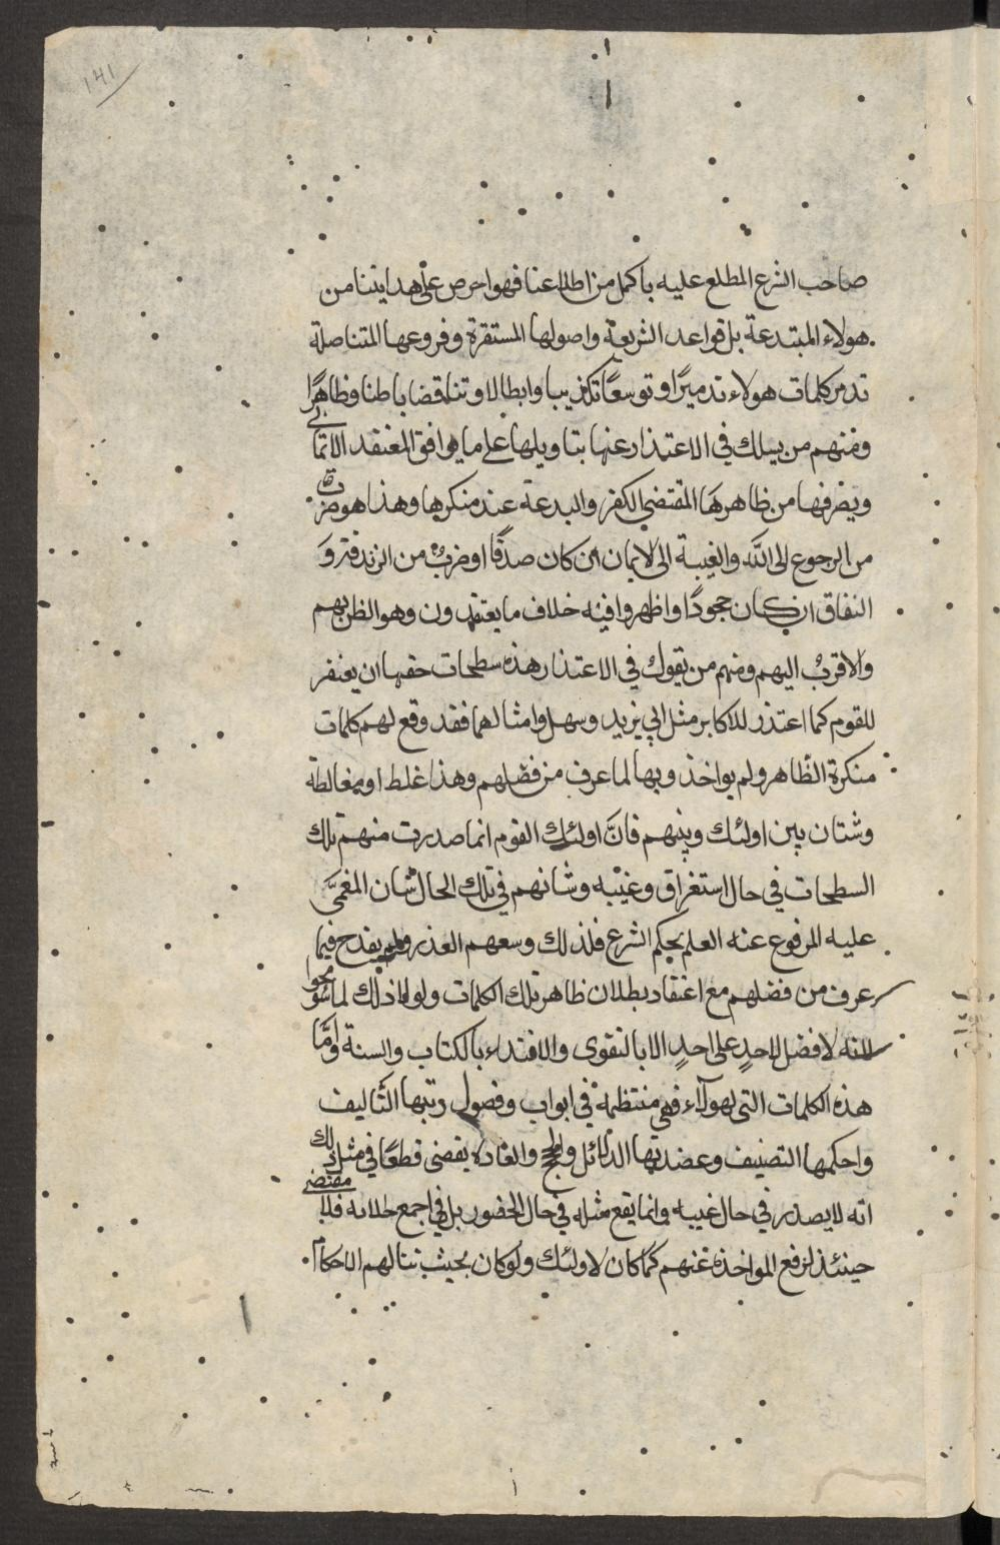 ١٤١
صاحب الشرع المطلع عليه باكمل من اطلاعنا فهو احرص على هدايتنا من
هولاء المبتدعة بل قواعد الشريعة واصولها المستقرة وفروعها المتناصلة
تدمر كلمات هولاء تدميرًا وتوسعًا تكذيبا وابطالا وتناقضا باطنا وظاهرًا
ومنهم من يسلك في الاعتذار عنها بتاويلها على ما يوافق المعتقد الايماني
ويصرفها من ظاهرها المقتضي الكفر والبدعة عند منكرها وهذا هو ضرب
من الرجوع الى الله والغيبة الى الايمان ان كان صدقًا او ضربٌ من الزندقة و
النفاق ان كان جحودًا واظهروا فيه خلاف ما يعتقدون وهو الظن بهم
والاقربُ اليهم ومنهم من يقول في الاعتذار هذه سطحات حقها ان يغتفر
للقوم كما اعتذر للاكابر مثل ابي يزيد وسهل وامثالهما فقد وقع لهم كلمات
منكرة الظاهر ولم يواخذوا بها لما عرف من فضلهم وهذا غلط او مغالطة
وشتان بين اولئك وبينهم فانَّ اولئك القوم انما صدرت منهم تلك
السطحات في حال استغراق وغيبه وشانهم في تلك الحال شان المغمَّي
عليه المرفوع عنه العلم بحكم الشرع فلذلك وسعهم العذر ولم يقدح فيما
عرف من فضلهم مع اعتقاد بطلان ظاهر تلك الكلمات ولولا ذلك لما سومحوا
لانه لا فضل لاحدٍ على احدٍ الا بالتقوى والاقتداء بالكتاب والسنة وامَّا
هذه الكلمات التي لهولآء فهي منتظمة في ابواب وفصول رتبها التاليف
واحكمها التصنيف وعضدتها الدلائل والحجج والعادة يقضى قطعًا في مثل ذلك
انه لا يصدر في حال غيبه وانما يقع مثله في حال الحضور بل في اجمع حلاته فلا مقتضى
حينئذ لرفع المواخذة عنهم كما كان لاولئك ولو كان بحيث تنالهم الاحكام